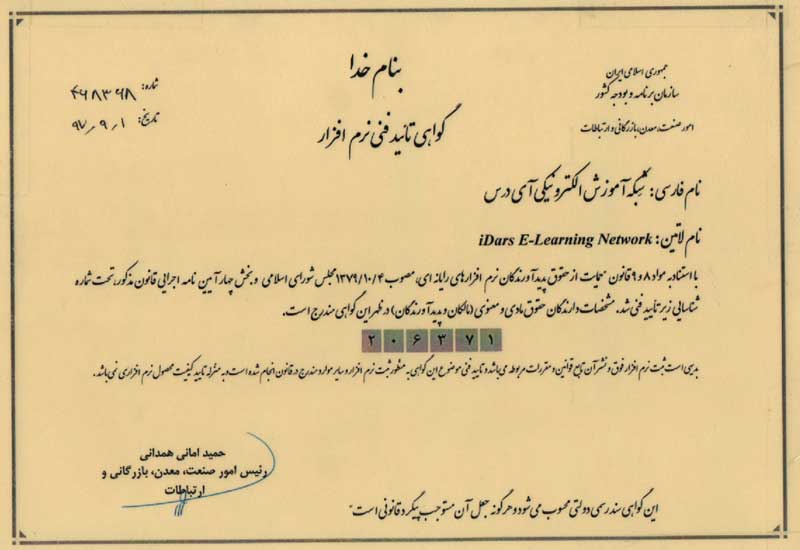 بنام خدا
جمهوری اسلامی ایران
سازمان برنامه و بودجه کشور
امور صنعت، معدن، بازرگانی و ارتباطات
شماره: ۴۶۸۳۶۸
تاریخ: ۹۷٫۹٫۱
گواهی تائید فنی نرم افزار
نام فارسی: شبکه آموزش الکترونیکی آی درس
نام لاتین: iDars E-Learning Network
با استناد به مواد ۸ و ۹ قانون حمایت از حقوق پدیدآورندگان نرم افزارهای رایانه ای، مصوب ۱۳۷۹/۱۰/۴ مجلس شورای اسلامی و بخش چهار آیین نامه اجرایی قانون مذکور، تحت شماره
شناسایی زیر تأیید فنی شد. مشخصات دارندگان حقوق مادی و معنوی (مالکان و پدیدآورندگان) در ظهر این گواهی مندرج است.
۲۰۶۳۷۱
بدیهی است ثبت نرم افزار فوق و نشر آن تابع قوانین و مقررات مربوطه می‌باشد و تایید فنی موضوع این گواهی به منظور ثبت نرم افزار و سایر موارد مندرج در قانون انجام شده است و به منزله تایید کیفیت محصول نرم افزاری نمی‌باشد.
حمید امانی همدانی
رئیس امور صنعت، معدن، بازرگانی و
ارتباطات
این گواهی سند رسمی دولتی محسوب می‌شود و هرگونه جعل آن مستوجب پیگرد قانونی است"